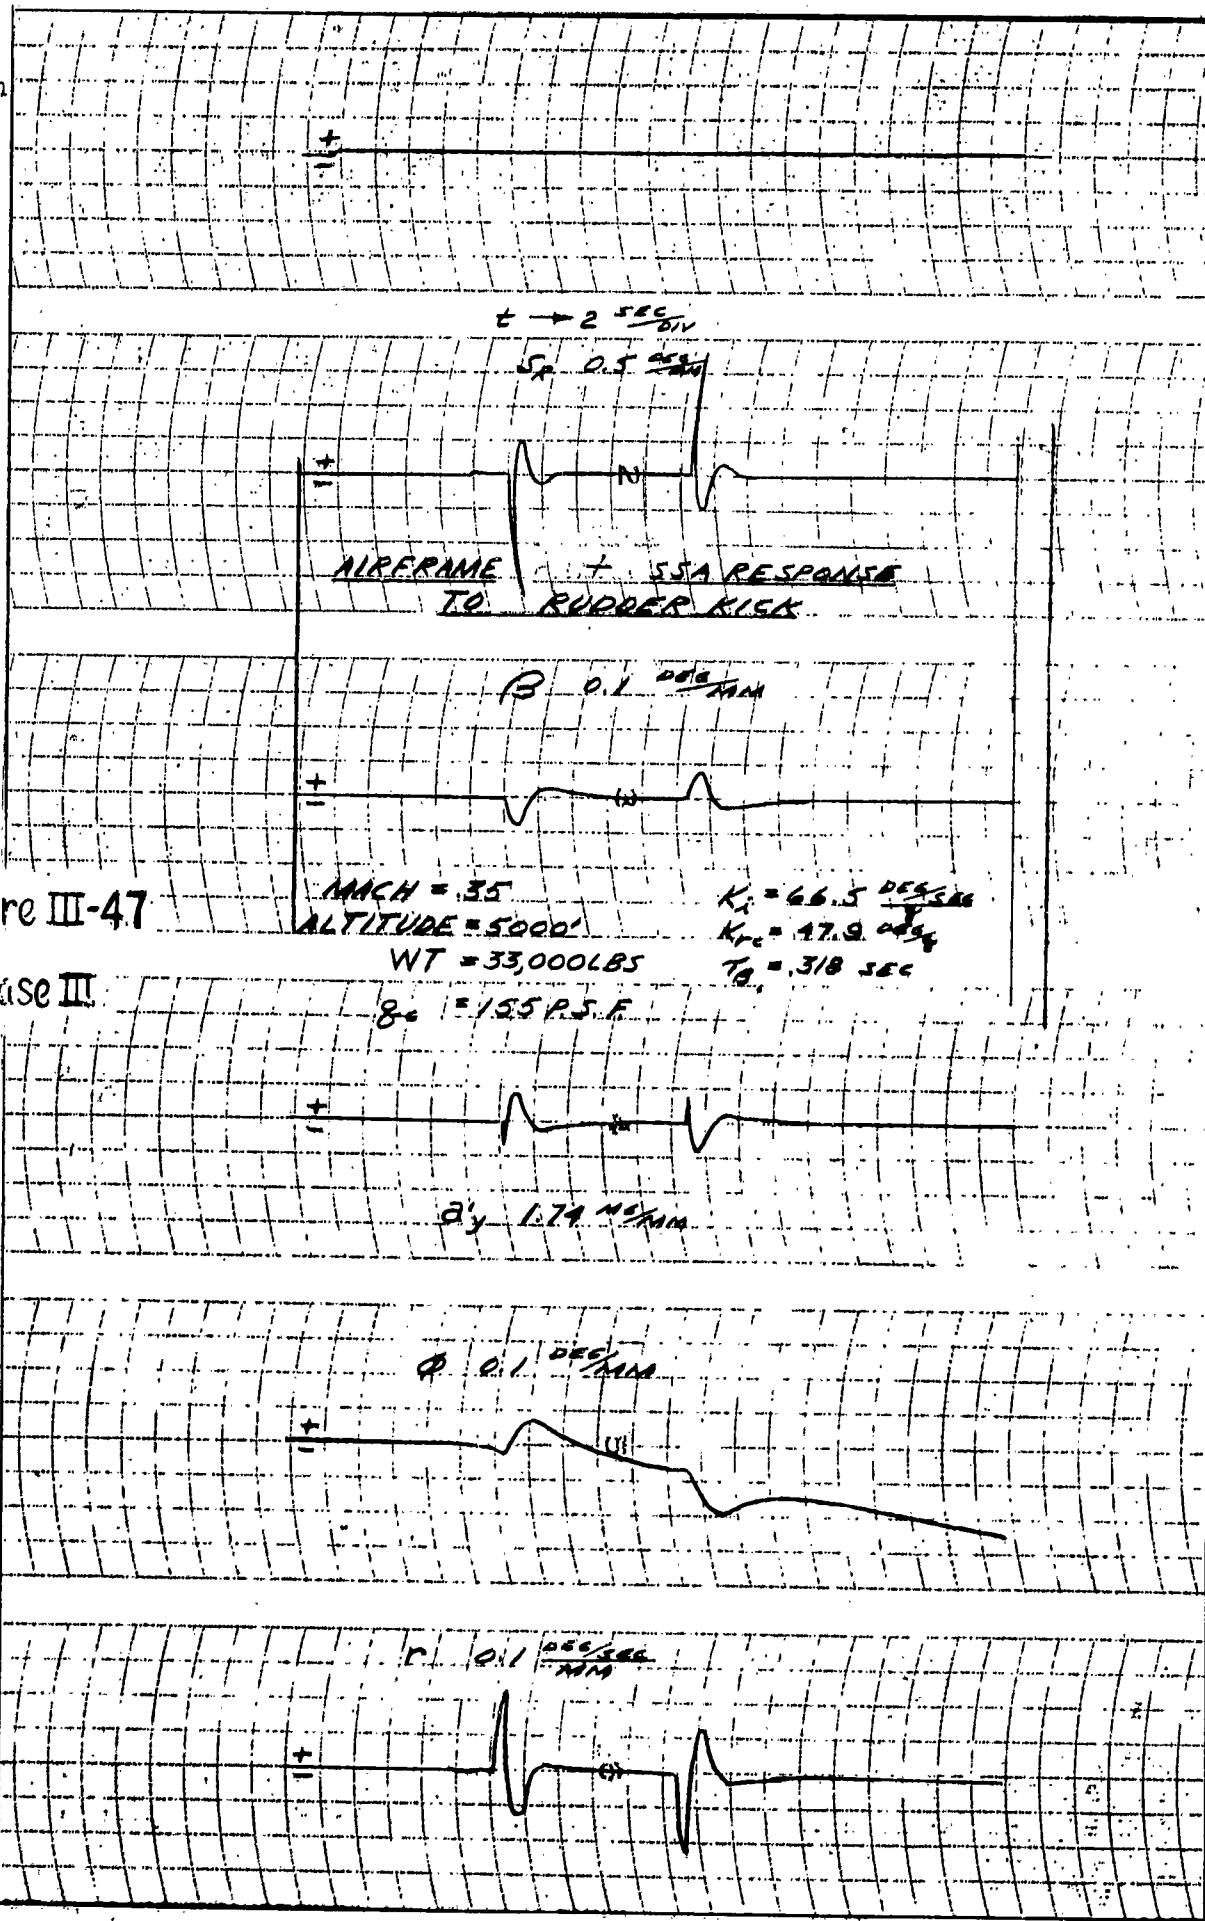 +
−
t → 2 SEC/DIV
δR 0.5 DEG/MM
+
−
AIRFRAME + SSA RESPONSE
TO RUDDER KICK
β 0.1 DEG/MM
+
−
re III-47
MACH = .35
ALTITUDE = 5000'
WT = 33,000 LBS
= 155 P.S.F.
Ki = 66.5 DEG/SEC
= 47.9
= .318 SEC
ase III
+
−
a'y 1.74 MG/MM
Φ 0.1 DEG/MM
+
−
r 0.1 DEG/SEC/MM
+
−